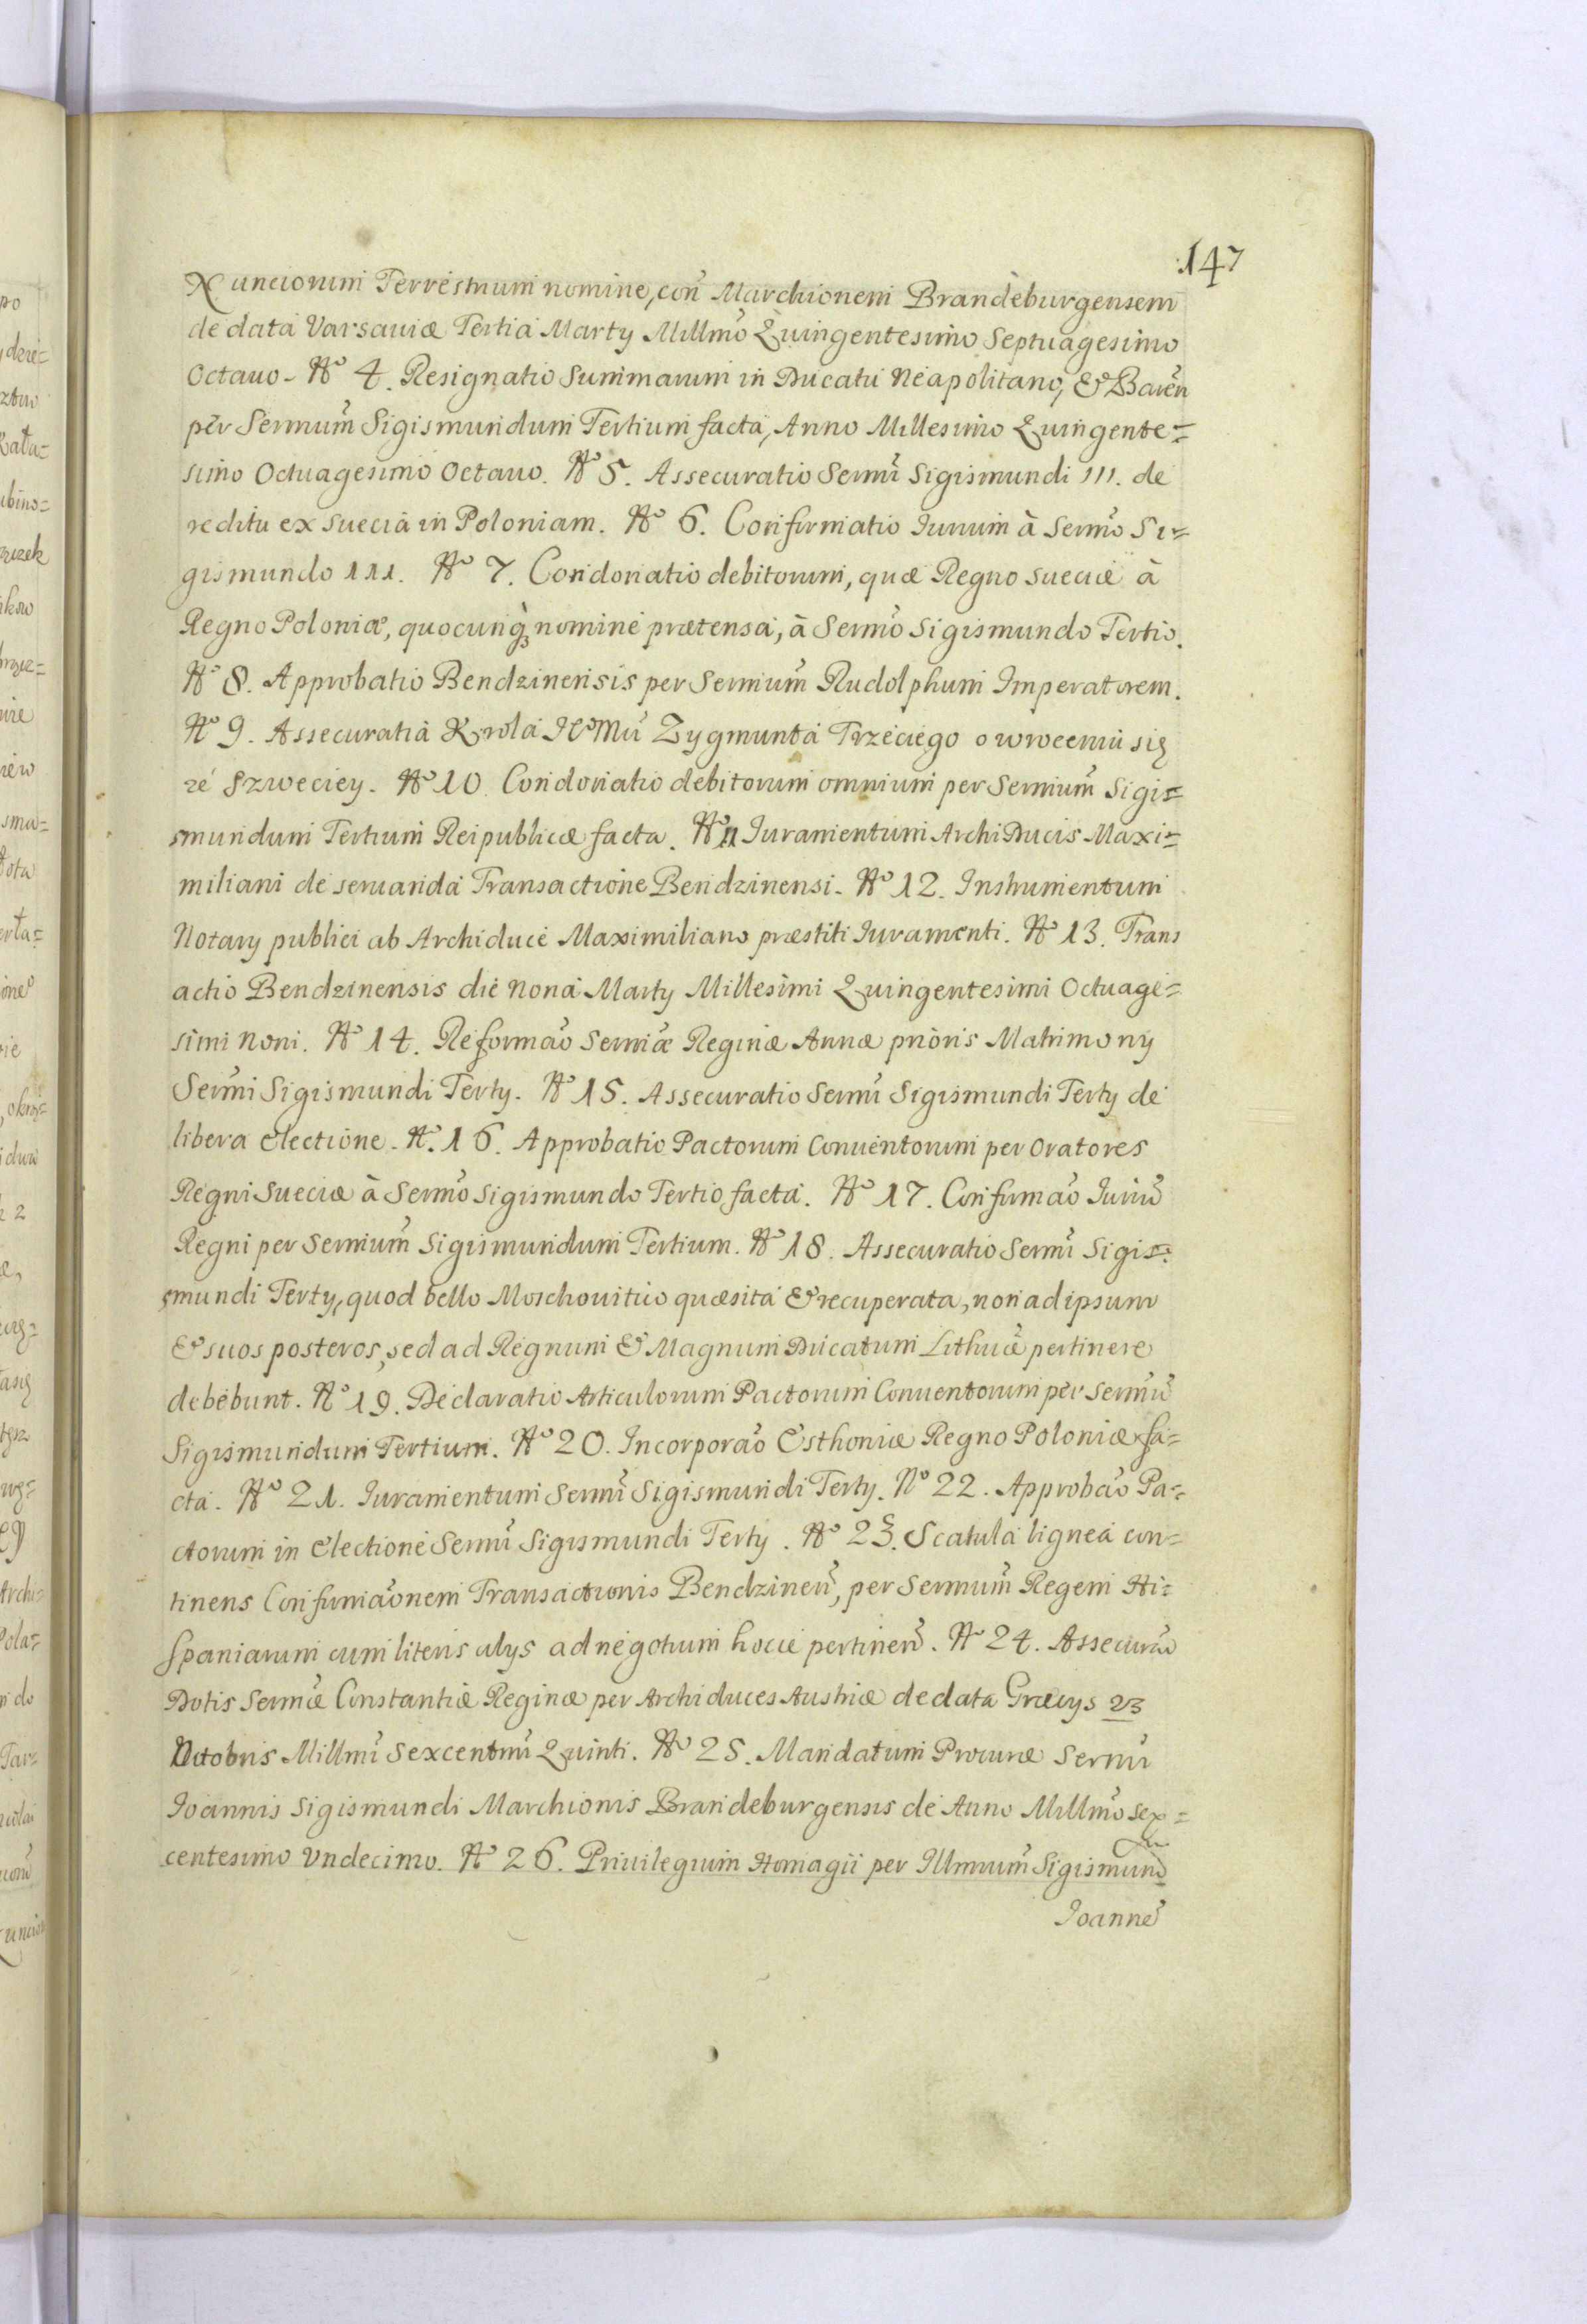 147
Nunciorum Terrestrium nomine, con̄ Marchionem Brandeburgensem
de data Varsaviæ Tertia Martÿ Millm̄o Quingentesimo Septuagesimo
Octauo. Nº 4. Resignatio Summarum in Ducatu Neapolitano, & Baren̄
per Sermum̄ Sigismundum Tertium facta, Anno Millesimo Quingente=
simo Octuagesimo Octauo. Nº 5. Assecuratio Sermī Sigismundi III. de
reditu ex Suecia in Poloniam. Nº 6. Confirmatio Iurium à Serm̄o Si=
gismundo III. Nº 7. Condonatio debitorum, quæ Regno Sueciæ à
Regno Poloniæ, quocunq̀ȝ nomine prætensa, à Serm̄o Sigismundo Tertio.
Nº 8. Approbatio Bendzinensis per Sermum̄ Rudolphum Imperatorem.
Nº 9. Assecuratia Krola Ieº Mći Zygmunta Trzeciego o wroceniu się
ze Szweciey. Nº 10. Condonatio debitorum omnium per Sermum̄ Sigis=
smundum Tertium Reipublicæ facta. Nº 11 Iuramentum Archi Ducis Maxi=
miliani de seruanda Transactione Bendzinensi. Nº 12. Instrumentum
Notarÿ publici ab Archiduce Maximiliano præstiti Iuramenti. Nº 13. Trans
actio Bendzinensis die nona Martÿ Millesimi Quingentesimi Octuage=
simi Noni. Nº 14. Reformaō Sermæ Reginæ Annæ prioris Matrimonÿ
Serm̄i Sigismundi Tertÿ. Nº 15. Assecuratio Sermī Sigismundi Tertÿ de
libera Electione. Nº. 16. Approbatio Pactorum Conuentorum per Oratores
Regni Sueciæ à Serm̄o Sigismundo Tertio facta. Nº 17. Confirmaō Iuriū
Regni per Sermum̄ Sigismundum Tertium. Nº 18. Assecuratio Sermī Sigis=
smundi Tertÿ, quod bello Moschouitico quæsita & recuperata, non ad ipsum
& suos posteros, sed ad Regnum & Magnum Ducatum Lithuǣ pertinere
debebunt. Nº 19. Declaratio Articulorum Pactorum Conuentorum per Sermū
Sigismundum Tertium. Nº 20. Incorporaō Esthoniæ Regno Poloniæ fa=
cta. Nº 21. Iuramentum Sermī Sigismundi Tertÿ. Nº 22. Approbaō Pa=
ctorum in Electione Sermī Sigismundi Tertÿ. Nº 23. Scatula lignea con=
tinens Confirmaōnem Transactionis Bendzinen̄, per Sermum̄ Regem Hi=
spaniarum cum literis alÿs ad negotium hocce pertinen̄. Nº 24. Assecuraō
Dotis Sermǣ Constantiæ Reginæ per Archiduces Austriæ de data Græcÿs 23
Octobris Millmī Sexcentmī Quinti. Nº 25. Mandatum Procuræ Sermī
Ioannis Sigismundi Marchionis Brandeburgensis de Anno Millm̄o Sex=
centesimo Vndecimo. Nº 26. Priuilegium Homagii per Illmum̄ Sigismund
Ioanne̅